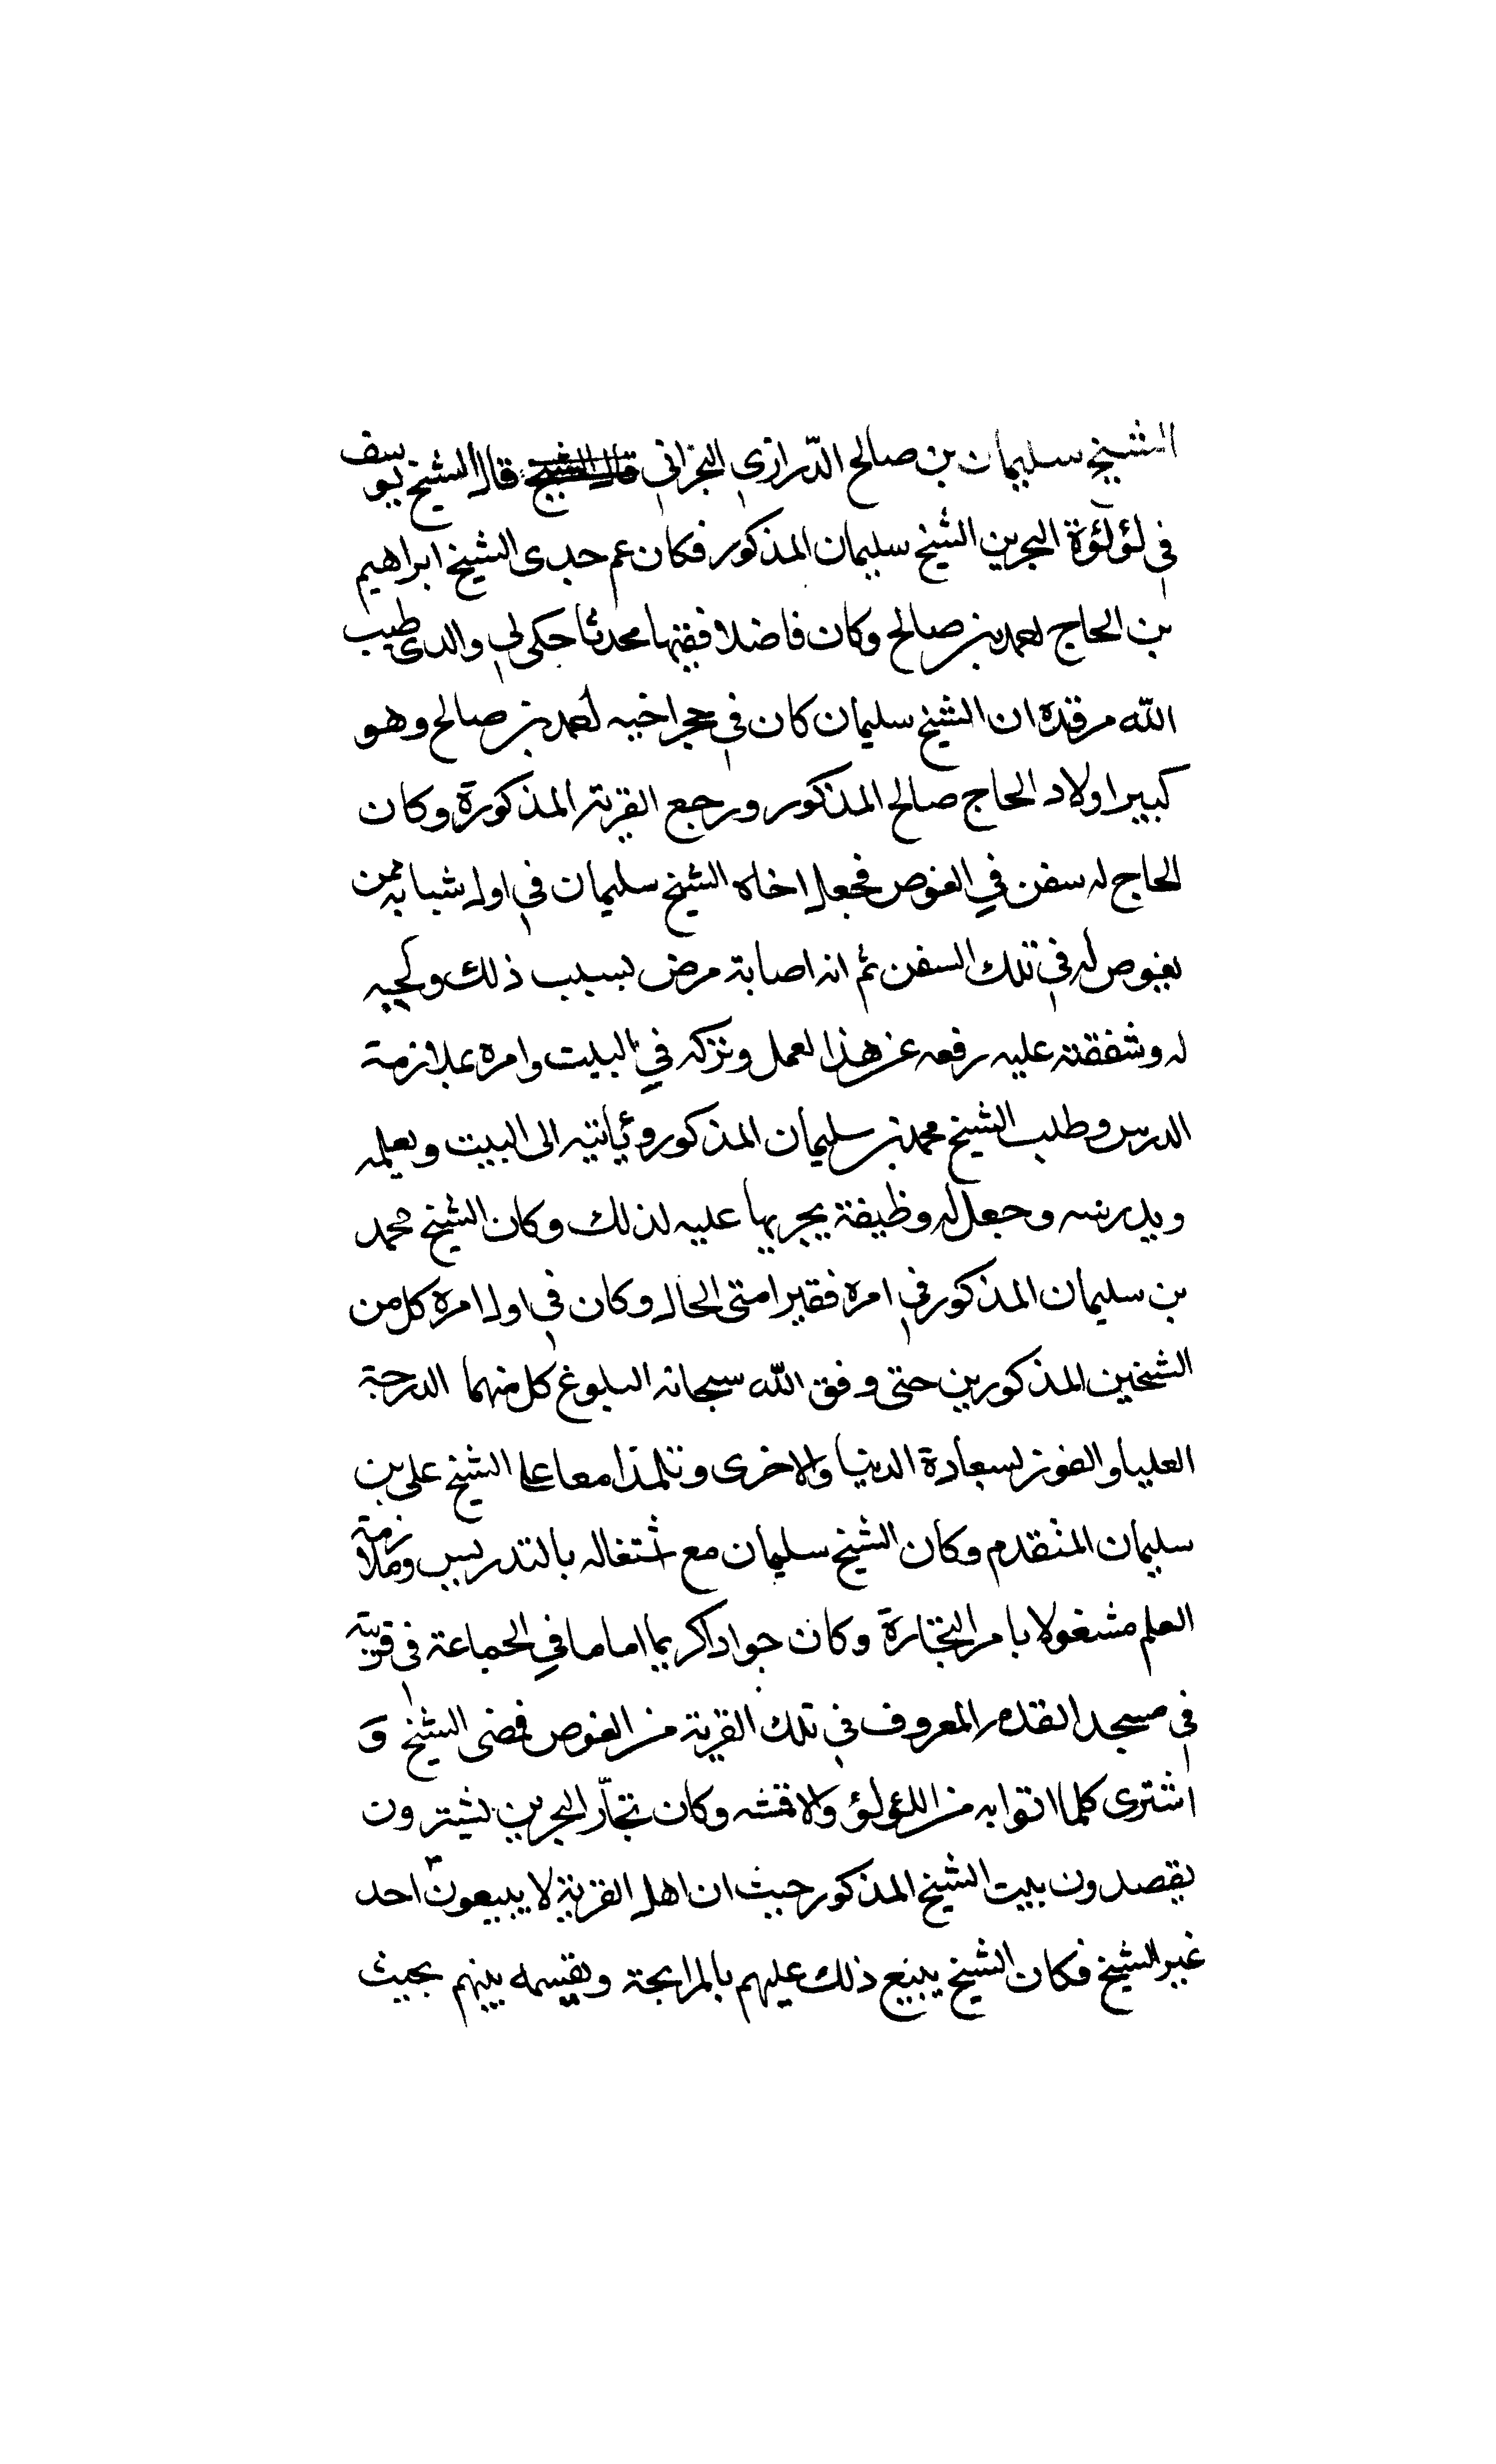 الشيخ سليمان بن صالح الدّرازي البحراني قال الشيخ قال الشيخ يوسف
في لؤلؤة البحرين الشيخ سليمان المذكور فكان عم جدى الشيخ ابراهيم
بن الحاج احمد بن صالح وكان فاضلا فقيها محدثا حكى لي والدى طيب
الله مرقده ان الشيخ سليمان كان في حجر اخيه احمد بن صالح وهو
كبير اولاد الحاج صالح المذكور ورجع القرية المذكورة وكان
الحاج له سفن في الغوص فجعل اخاه الشيخ سليمان في اول شبابه ممن
يغوص له في تلك السفن ثم انه اصابة مرض بسبب ذلك ولحبه
له وشفقته عليه رفعه عن هذا العمل وتركه في البيت وامره بملازمة
الدرس وطلب الشيخ محمد بن سليمان المذكور ويأتيه الى البيت ويعلمه
ويدرسه وجعل له وظيفة يجريها عليه لذلك وكان الشيخ محمد
بن سليمان المذكور في امره فقيرا متى الحال وكان في اول امره كل من
الشخين المذكورين حتى وفق الله سبحانه البلوغ كل منهما الدرجة
العليا والفوز لسعادة الدنيا والاخرى وتلمذا معا على الشيخ على بن
سليمان المتقدم وكان الشيخ سليمان مع اشتغاله بالتدريس وملازمة
العلم مشغولا بامر التجارة وكان جوادا كريما اماما في الجماعة في قرية
في مسجد القدم المعروف في تلك القرية من الغوص فمضى الشيخ و
اشترى كلما اتوا به من اللؤلؤ والاقمشه وكان تجّار البحرين يشترون
يقصدون بيت الشيخ المذكور حيث ان اهل القرية لا يبيعون احد
غير الشيخ فكان الشيخ يبيع ذلك عليهم بالمرابحة ويقسمه بينهم بحيث